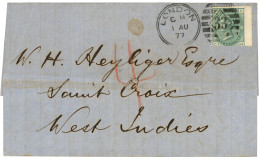 LONDON
1 AU
77
W. H. Heyliger Esqre
Saint Croix
West Indies